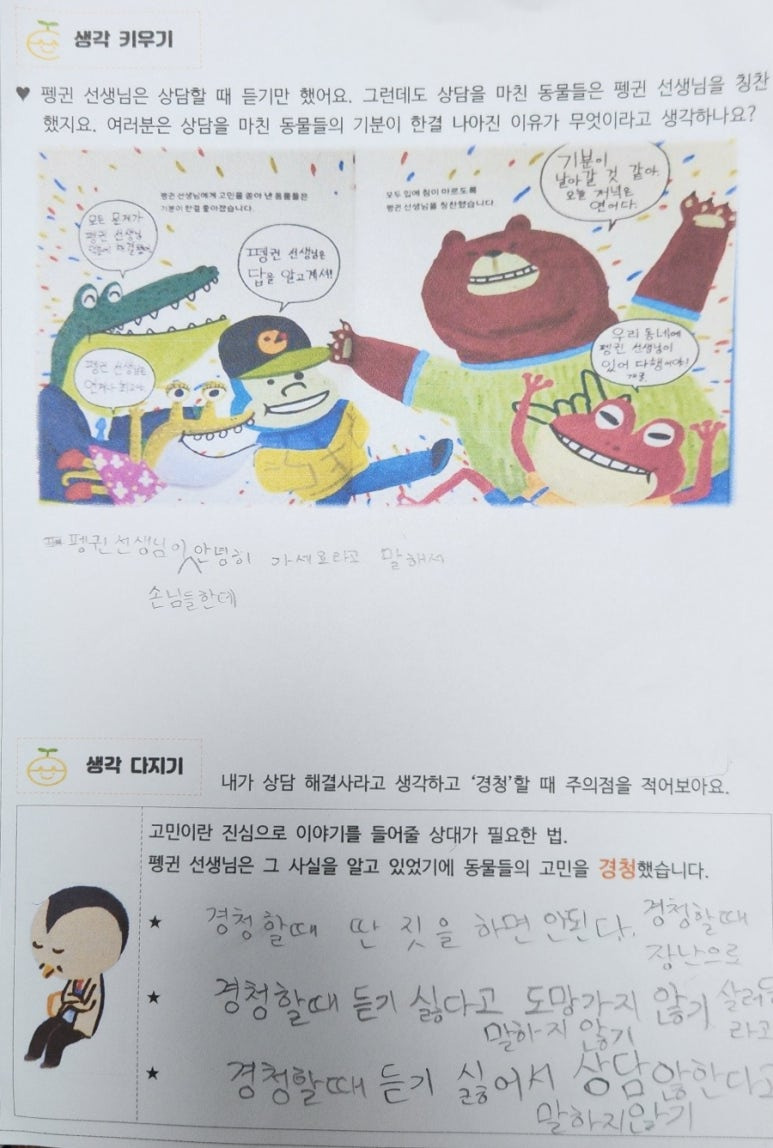 생각 키우기
♥ 펭귄 선생님은 상담할 때 듣기만 했어요. 그런데도 상담을 마친 동물들은 펭귄 선생님을 칭찬
했지요. 여러분은 상담을 마친 동물들의 기분이 한결 나아진 이유가 무엇이라고 생각하나요?
펭귄 선생님에게 고민을 쏟아 낸 동물들은
기분이 한결 좋아졌습니다.
모든 문제가
펭귄 선생님
펭귄 선생님은
답을 알고 계셔!
펭귄 선생님은
언제나 최고야
모두 입에 침이 마르도록
펭귄 선생님을 칭찬했습니다
기분이
날아갈 것 같아.
오늘 저녁은
연어다.
우리 동네에
펭귄 선생님이
있어 다행이야!
개굴
펭귄 선생님이 안녕히 가세요라고 말해서
손님들한데
생각 다지기
내가 상담 해결사라고 생각하고 '경청'할 때 주의점을 적어보아요.
고민이란 진심으로 이야기를 들어줄 상대가 필요한 법.
펭귄 선생님은 그 사실을 알고 있었기에 동물들의 고민을 경청했습니다.
★ 경청 할때 딴 짓을 하면 안된다. 경청할때
장난으로
★ 경청할때 듣기 싫다고 도망가지 않기
말하지 않기 라고
★ 경청할때 듣기 싫어서 상담않한다고
말하지않기